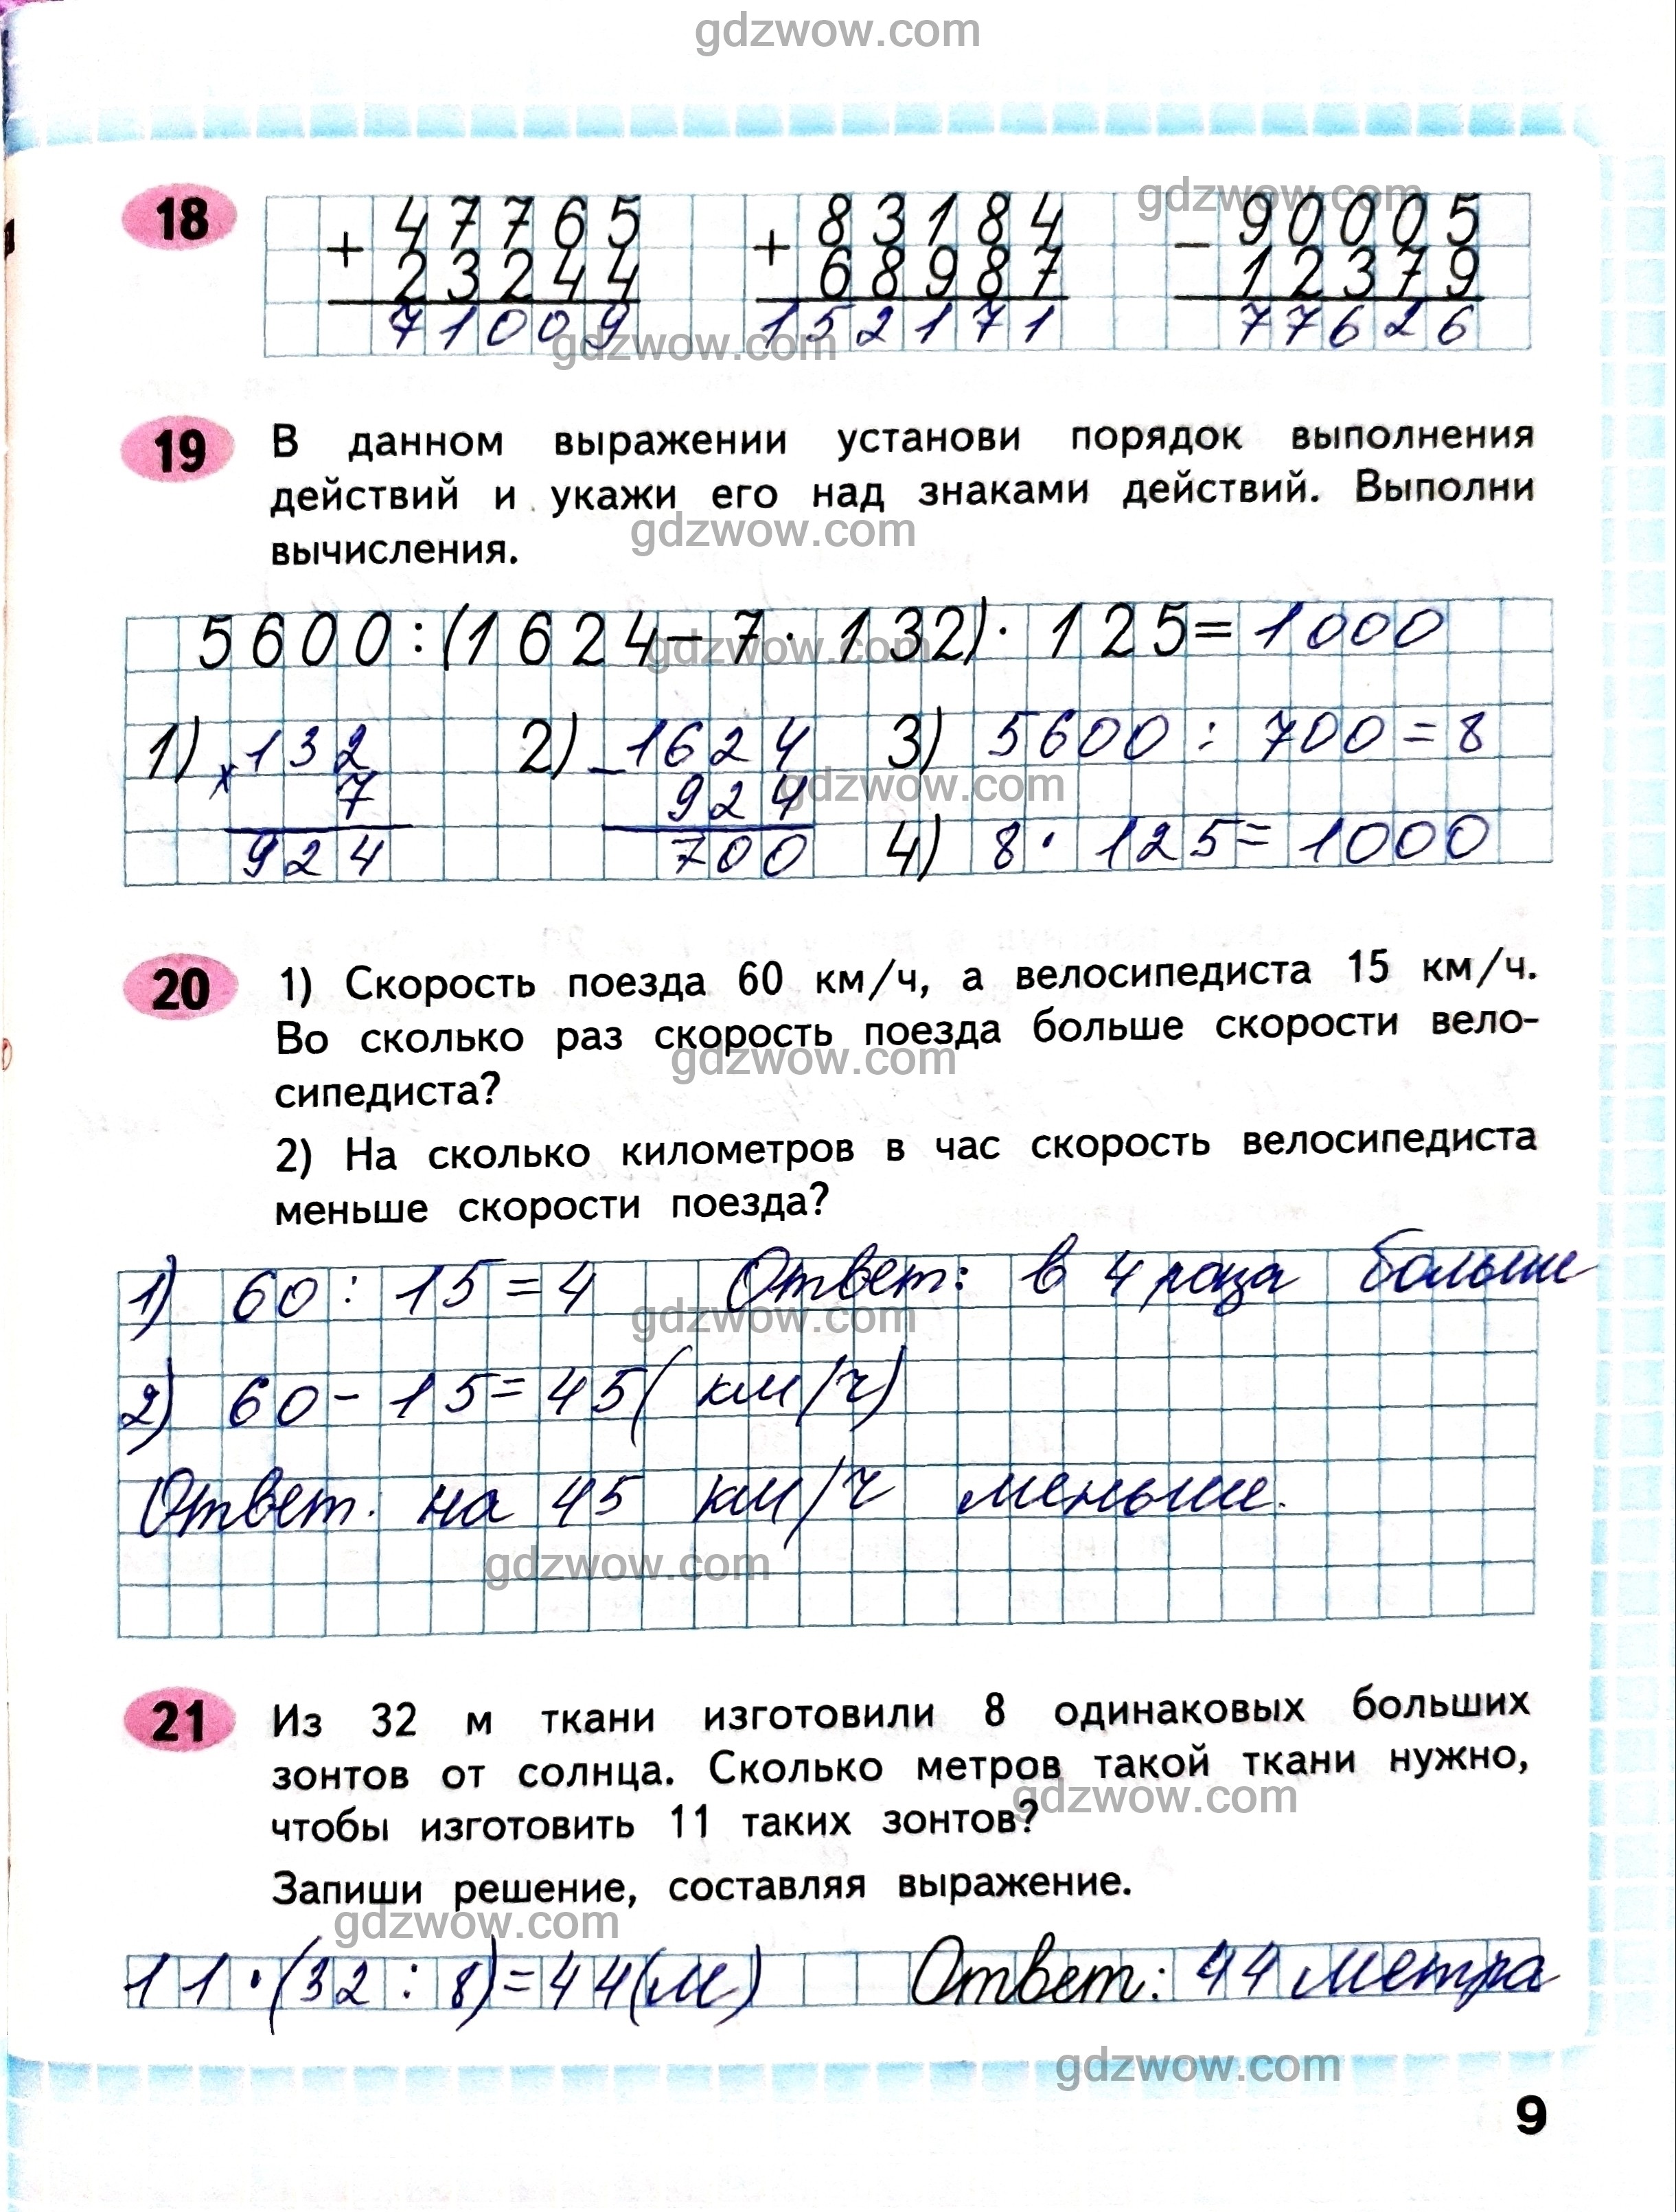 gdzwow.com
18
gdzwow.com
+ 47765 + 83184 - 90005
23244 68987 12379
71009 152171 77626
gdzwow.com
19 В данном выражении установи порядок выполнения
действий и укажи его над знаками действий. Выполни
вычисления.
gdzwow.com
5600:(1624-7·132)·125=1000
gdzwow.com
1) x 132 2) - 1624 3) 5600 : 700 = 8
7 924
gdzwow.com
924 700 4) 8 · 125 = 1000
20 1) Скорость поезда 60 км/ч, а велосипедиста 15 км/ч.
Во сколько раз скорость поезда больше скорости вело-
gdzwow.com
сипедиста?
2) На сколько километров в час скорость велосипедиста
меньше скорости поезда?
1) 60 : 15 = 4 Ответ: в 4 раза больше
gdzwow.com
2) 60 - 15 = 45 (км/ч)
Ответ: на 45 км/ч меньше.
gdzwow.com
21 Из 32 м ткани изготовили 8 одинаковых больших
зонтов от солнца. Сколько метров такой ткани нужно,
gdzwow.com
чтобы изготовить 11 таких зонтов?
Запиши решение, составляя выражение.
gdzwow.com
11 · (32 : 8) = 44 (м) Ответ: 44 метра
gdzwow.com
9